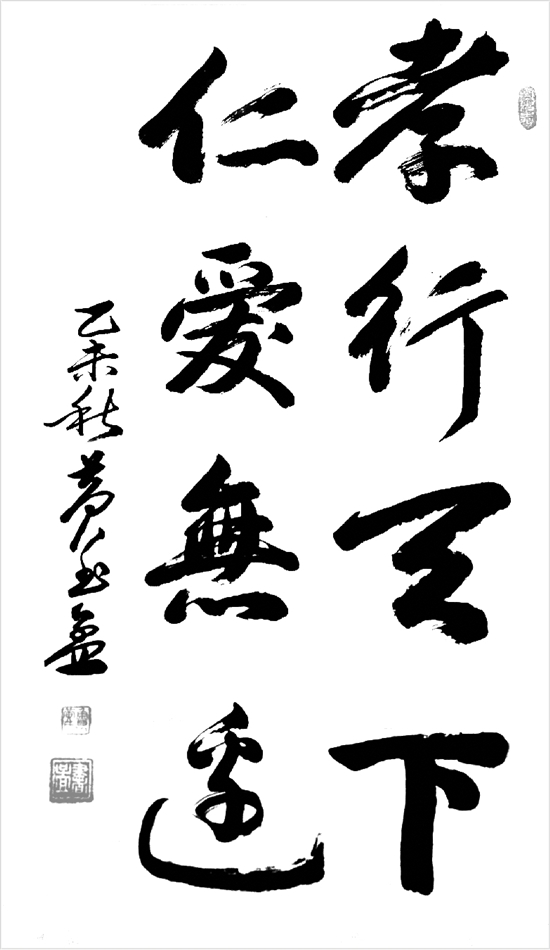 孝行天下
仁愛無邊
乙未秋黃玉